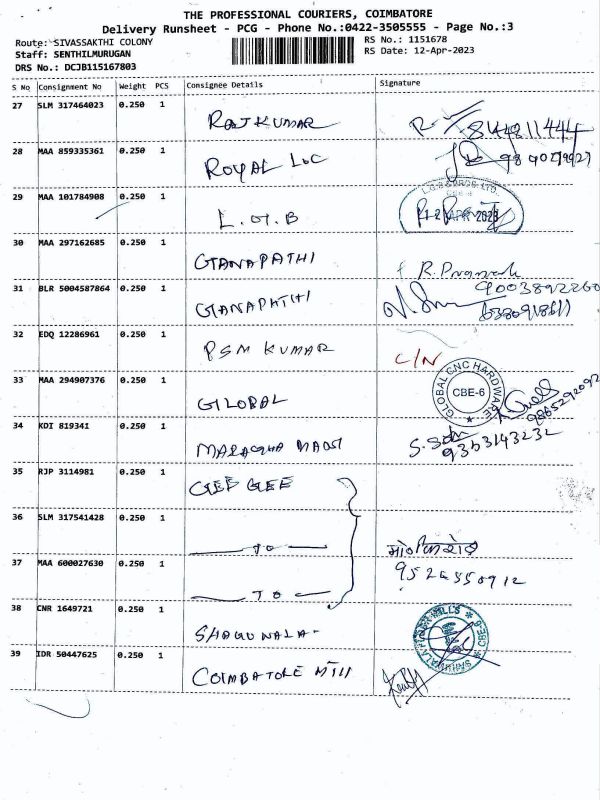 THE PROFESSIONAL COURIERS, COIMBATORE
Delivery Runsheet - PCG - Phone No.:0422-3505555 - Page No.:3
Route: SIVASSAKTHI COLONY
RS No.: 1151678
Staff: SENTHILMURUGAN
RS Date: 12-Apr-2023
DRS No.: DCJB115167803
S No Consignment No Weight PCS Consignee Details Signature
27 SLM 317464023 0.250 1 RAJKUMAR
28 MAA 859335361 0.250 1 ROYAL LOC
29 MAA 101784908 0.250 1 L.G.B
30 MAA 297162685 0.250 1 GANAPATHI
31 BLR 5004587864 0.250 1 GANAPATHI 9003892260
32 EDQ 12286961 0.250 1 PSM KUMAR C/N
33 MAA 294907376 0.250 1 GLOBAL GLOBAL CNC HARDWARE CBE-6 9865292092
34 KDI 819341 0.250 1 9353143232
35 RJP 3114981 0.250 1 GEE GEE
36 SLM 317541428 0.250 1
37 MAA 600027630 0.250 1 9526550912
38 CNR 1649721 0.250 1
39 IDR 50447625 0.250 1 COIMBATORE